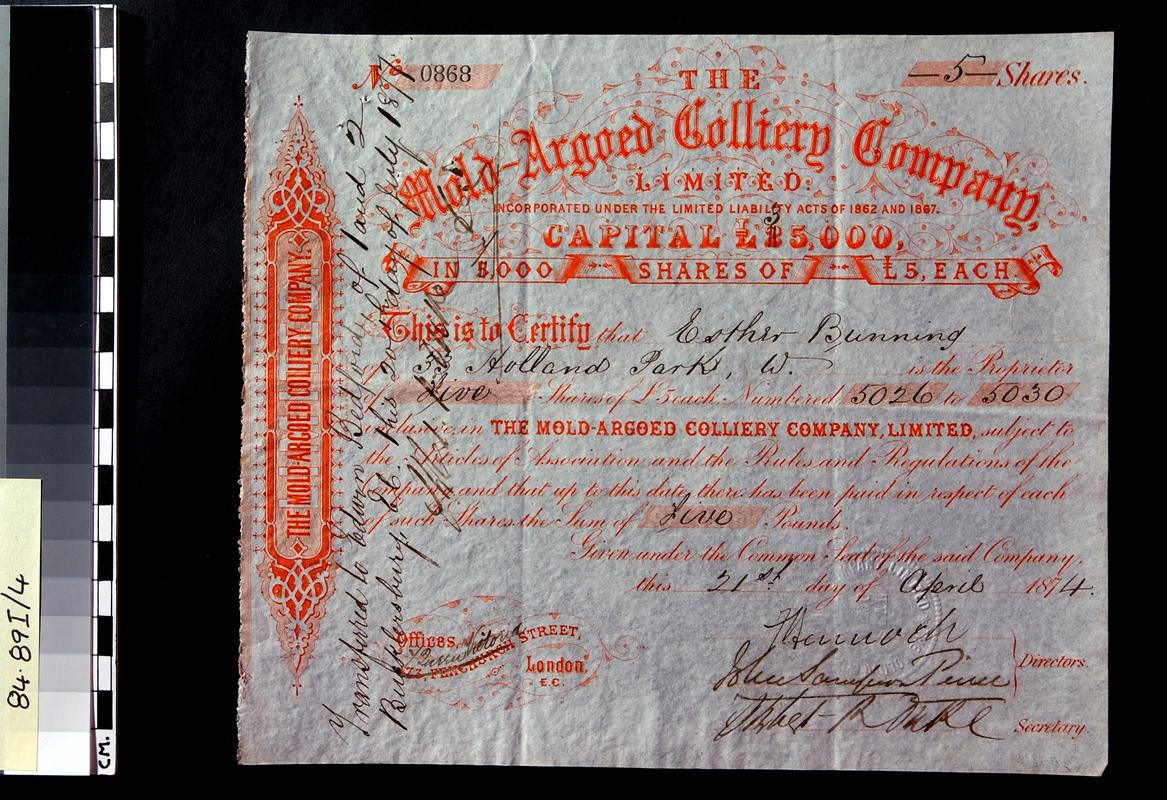 No. 0868
—5— Shares.
THE
Mold-Argoed Colliery Company,
LIMITED.
INCORPORATED UNDER THE LIMITED LIABILITY ACTS OF 1862 AND 1867.
CAPITAL £35,000,
IN 7,000 SHARES OF £5, EACH.
This is to Certify that Esther Bunning
of Holland Park, W. is the Proprietor
of Five Shares of £5 each Numbered 5026 to 5030
inclusive in THE MOLD-ARGOED COLLIERY COMPANY, LIMITED, subject to
the Articles of Association and the Rules and Regulations of the
Company and that up to this date there has been paid in respect of each
of such Shares the Sum of Five Pounds.
Given under the Common Seal of the said Company,
this 21st day of April 1874.
Directors.
Secretary.
Offices,
Queen Victoria
77, FENCHURCH STREET,
London,
E.C.
THE MOLD-ARGOED COLLIERY COMPANY.
Transferred to Edwin Bedford of 1 and 2
Bucklersbury, EC. this day of July 187
84.89I/4
CM.